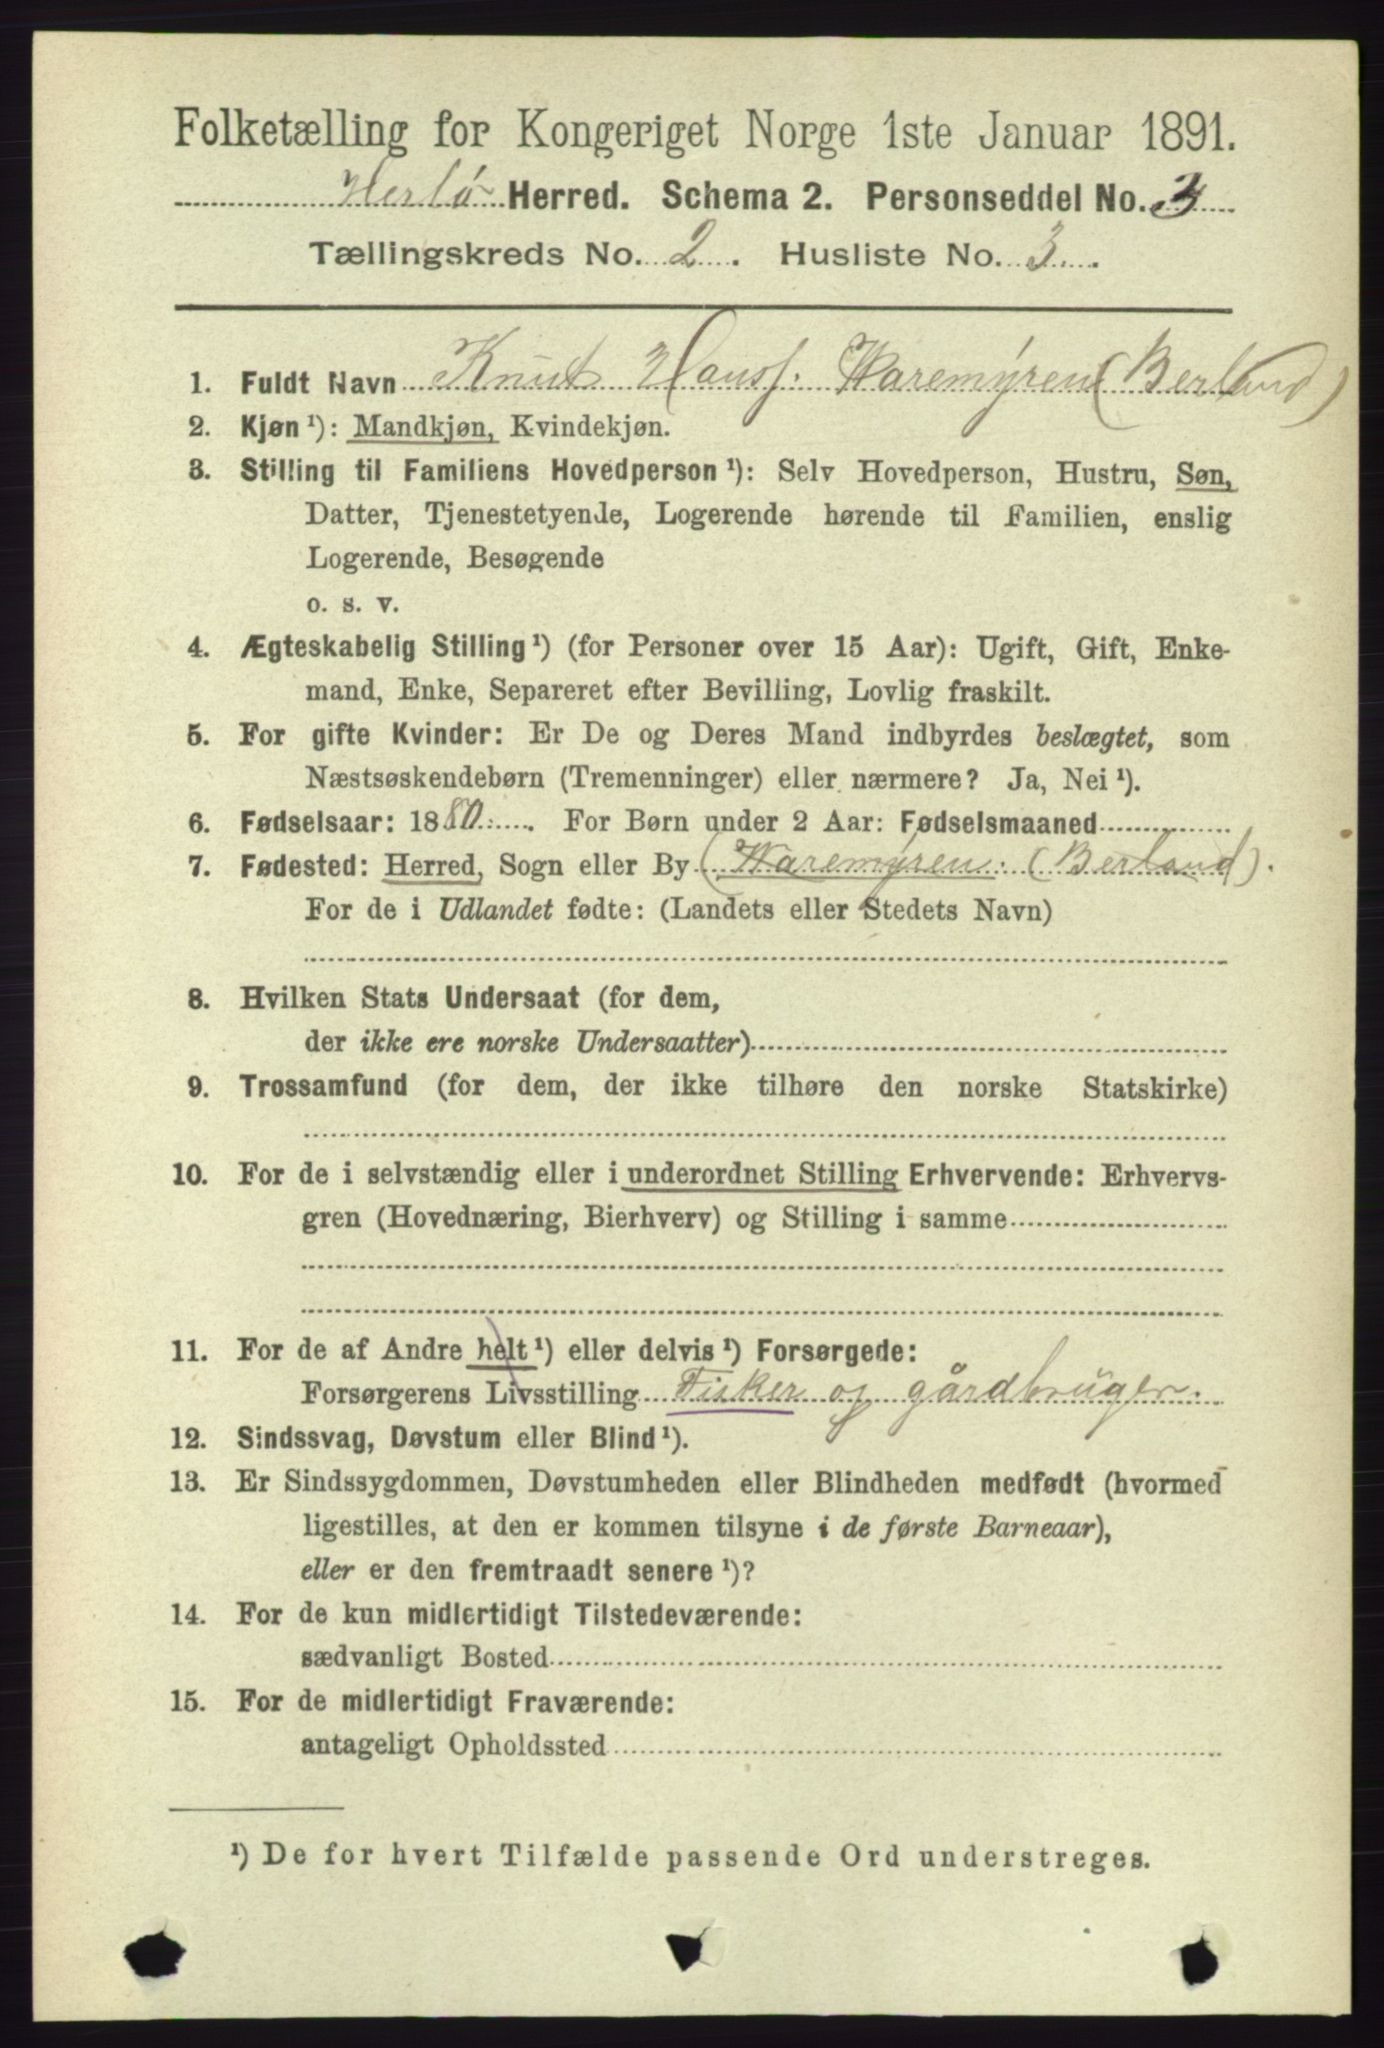 Folketælling for Kongeriget Norge 1ste Januar 1891.
Herlø Herred. Schema 2. Personseddel No. 3
Tællingskreds No. 2. Husliste No. 3.
1. Fuldt Navn Knut Hanss. Waremyren (Berland)
2. Kjøn ¹): Mandkjøn, Kvindekjøn.
3. Stilling til Familiens Hovedperson ¹): Selv Hovedperson, Hustru, Søn,
Datter, Tjenestetyende, Logerende hørende til Familien, enslig
Logerende, Besøgende
o. s. v.
4. Ægteskabelig Stilling ¹) (for Personer over 15 Aar): Ugift, Gift, Enke-
mand, Enke, Separeret efter Bevilling, Lovlig fraskilt.
5. For gifte Kvinder: Er De og Deres Mand indbyrdes beslægtet, som
Næstsøskendebørn (Tremenninger) eller nærmere? Ja, Nei ¹).
6. Fødselsaar: 1880. For Børn under 2 Aar: Fødselsmaaned
7. Fødested: Herred, Sogn eller By (Waremyren. (Berland).
For de i Udlandet fødte: (Landets eller Stedets Navn)
8. Hvilken Stats Undersaat (for dem,
der ikke ere norske Undersaatter)
9. Trossamfund (for dem, der ikke tilhøre den norske Statskirke)
10. For de i selvstændig eller i underordnet Stilling Erhvervende: Erhvervs-
gren (Hovednæring, Bierhverv) og Stilling i samme
11. For de af Andre helt ¹) eller delvis ¹) Forsørgede:
Forsørgerens Livsstilling Fisker og gårdbruger.
12. Sindssvag, Døvstum eller Blind ¹).
13. Er Sindssygdommen, Døvstumheden eller Blindheden medfødt (hvormed
ligestilles, at den er kommen tilsyne i de første Barneaar),
eller er den fremtraadt senere ¹)?
14. For de kun midlertidigt Tilstedeværende:
sædvanligt Bosted
15. For de midlertidigt Fraværende:
antageligt Opholdssted
¹) De for hvert Tilfælde passende Ord understreges.